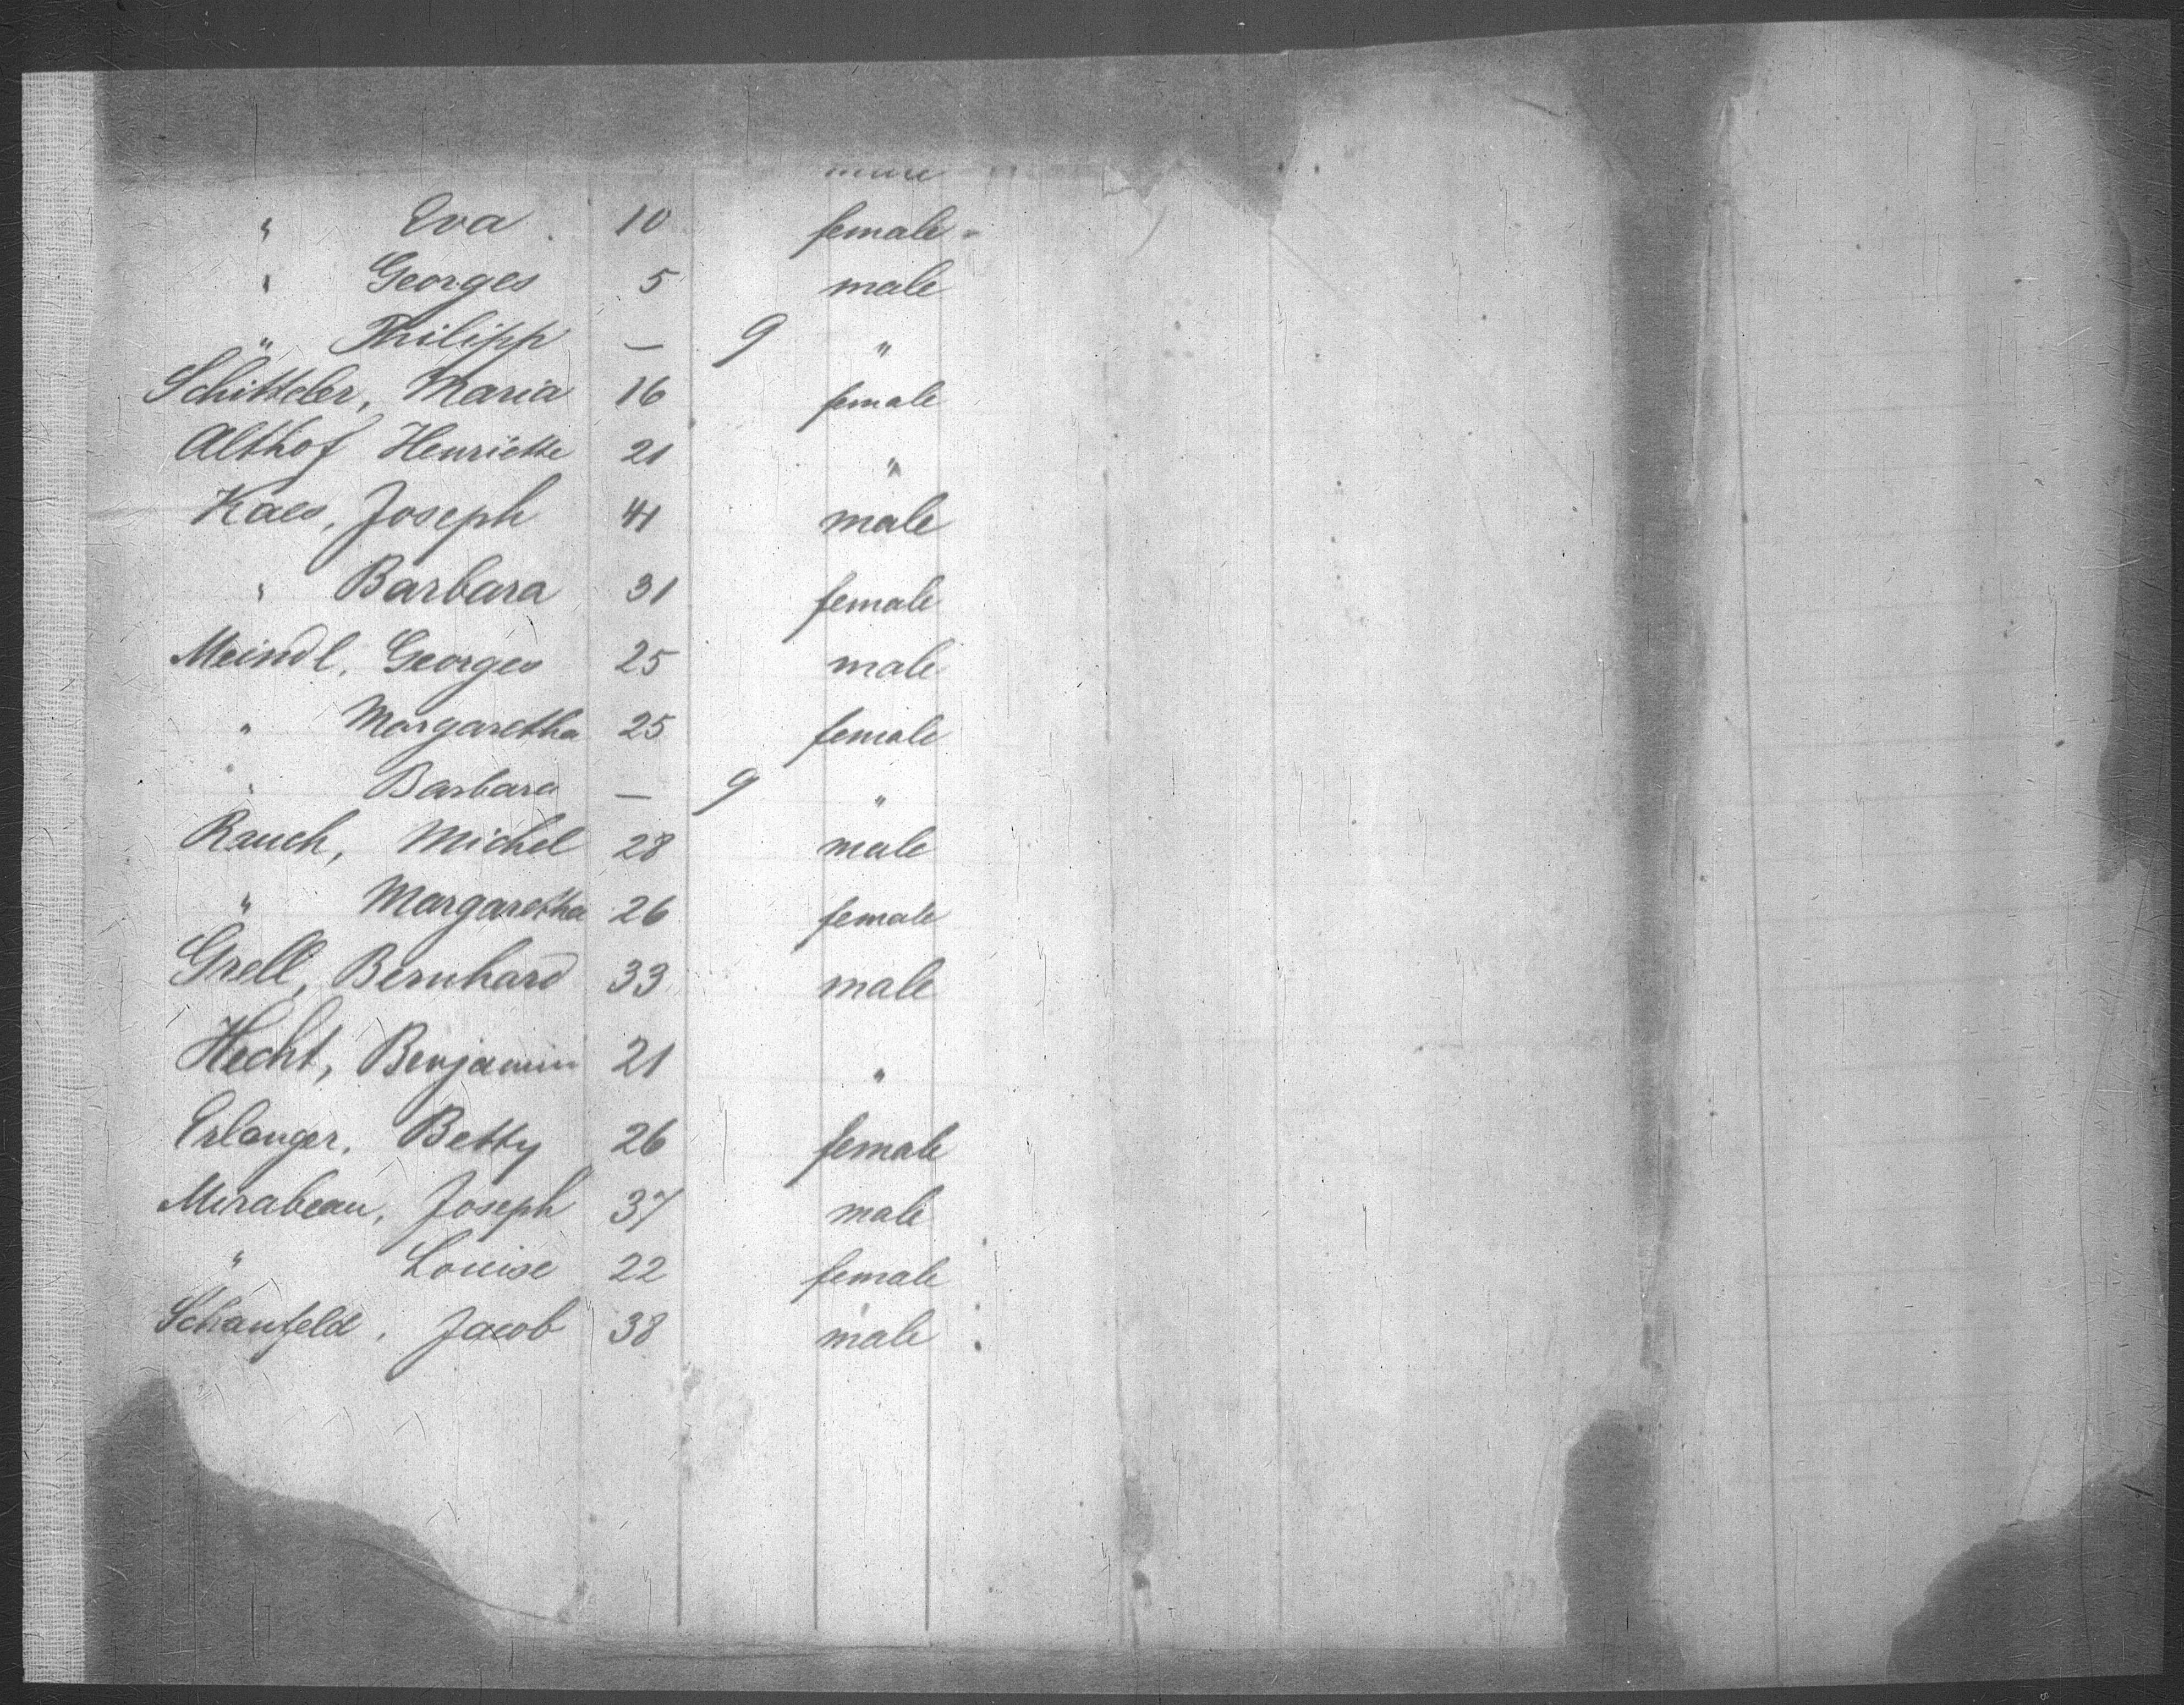 " Eva 10 female
" Georges 5 male
" Philipp — 9 "
Schitteler, Maria 16 female
Althof Henriette 21 "
Kaes, Joseph 41 male
" Barbara 31 female
Meindl, Georges 25 male
" Margaretha 25 female
" Barbara — 9 "
Rauch, Michel 28 male
" Margaretha 26 female
Grell, Bernhard 33 male
Hecht, Benjamin 21 "
Erlanger, Betty 26 female
Mirabeau, Joseph 37 male
" Louise 22 female
Schanfeld, Jacob 38 male